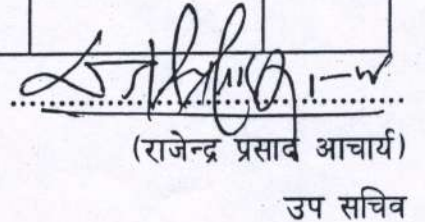 (राजेन्द्र प्रसाद आचार्य)
उप सचिव